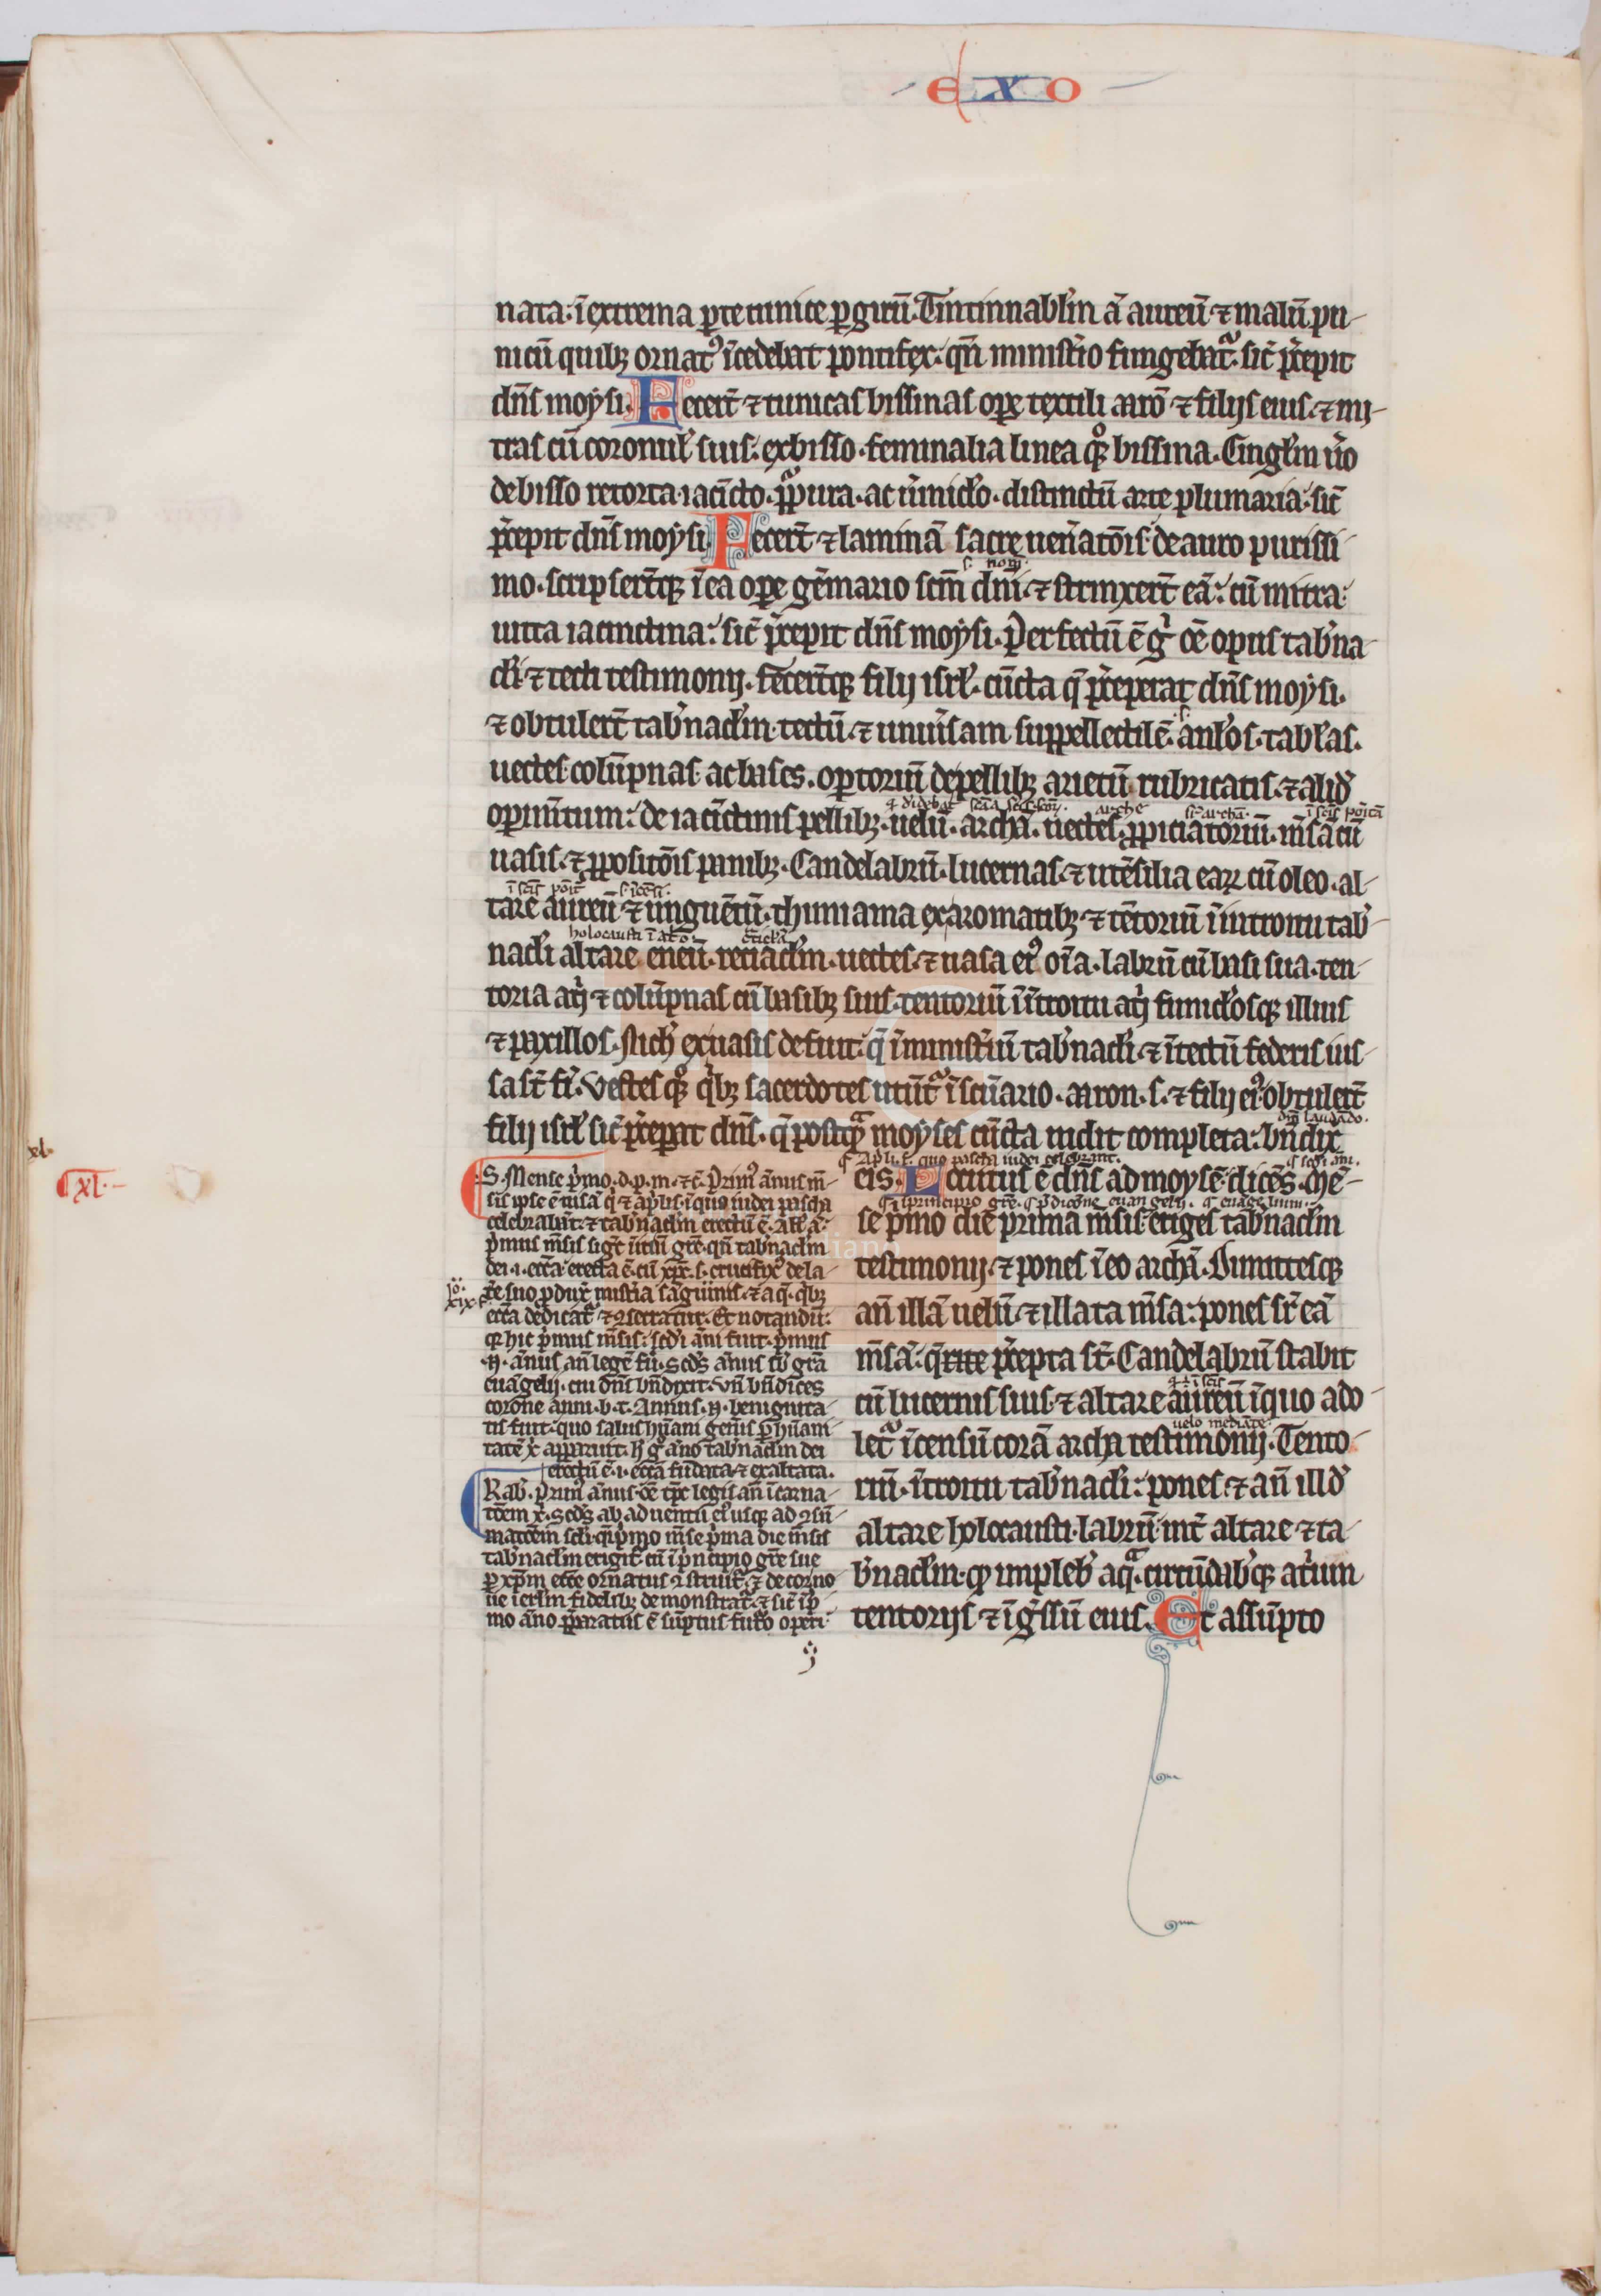 exo
nata: ī extrema ꝑte tunice ꝑ girū. Tintinnabl̄m ā aureū ⁊ malū pu-
nicū quibꝫ ornatꝰ īcedebat pontifex. qn̄ minist̄io fungebat᷑. sic̄ p̄cepit
dn̄s moysi. Fecer̄t ⁊ tunicas bissinas oꝑe textili aarō ⁊ filijs eius. ⁊ mi-
tras cū coronul̄ suis: ex bisso. feminalia linea qͦꝫ bissina. Cingl̄m ūo
de bisso retorta iacīcto. ꝑpura. ac ūmicl̄o. distinctū arte plumaria: sic̄
p̄cepit dn̄s moysi. Fecer̄t ⁊ laminā sacre uen̄atōis de auro purissi-
s. nom̄.
mo. scripser̄tqꝫ ī ea oꝑe gēmario scm̄ dn̄i. ⁊ strinxer̄t eā: cū mitra:
uitta iacinctina: sic̄ p̄cepit dn̄s moysi. Perfectū ē gͥ oē opus tab̄na-
cl̄i ⁊ tecti testimonij. fecer̄tqꝫ filij isrl̄. cūcta q̄ p̄ceperat dn̄s moysi.
⁊ obtuler̄t tab̄nacl̄m. tectū. ⁊ uniūsam suppellectilē. anl̄os. tabl̄as.
uectes colūpnas ac bases. opertoriū de pellibꝫ arietū rubricatis. ⁊ aliud̄
arche sr̄ archā.
oꝑim̄tum: de iacīctinis pellibꝫ. uelū. archā. uectes. ꝓpiciatoriū. m̄sā cū
uasis. ⁊ ꝓpositōis panibꝫ. Candelabrū. lucernas. ⁊ utēsilia eaꝝ cū oleo. al-
tare aureū ⁊ unguētū. thimiama ex aromatibꝫ. ⁊ tētoriū ī introitu tab̄-
holocausti ī at̄o. c̄ticl̄a
nacl̄i altare eneū. retiacl̄m. uectes. ⁊ uasa eiꝰ oīa. labrū cū basi sua. ten-
toria at̄ij ⁊ colūpnas cū basibꝫ suis. tentoriū ī introitu at̄ij funicl̄osqꝫ illius
⁊ paxillos. Nich̄ ex uasis defuit: q̄ ī minist̄iū tab̄nacl̄i. ⁊ ī tectū federis ius-
sa st̄ fi͛. Vestes qͦꝫ qͥbꝫ sacerdotes utūt᷑ ī sc̄uario. aaron. s. ⁊ filij eiꝰ. obtuler̄t
dm̄ laudādo.
filij isrl̄ sic̄ p̄cepat dn̄s. q̄ postqᷓ moyses cūcta uidit completa: bn̄dix̄
ꝗ Apl̄i. s. quo pascha iudei celebrant. ꝗ scd̄i an̄i.
eis. Locutus ē dn̄s ad moysē dicēs. Mē-
ꝗ ī principio gr̄e. ꝗ p̄dicōne euangelij. ꝗ euāge lium.
se pͥmo die prima m̄sis eriges tab̄nacl̄m
testimonij. ⁊ pones ī eo archā. Dimittesqꝫ
an̄ illā uelū. ⁊ illata m̄sa: pones sr̄ eā
m̄sā: q̄ rite p̄cepta st̄. Candelabrū stabit
cū lucernis suis. ⁊ altare aureū ī quo ado-
uelo mediāte.
let᷑ īcensū corā archa testimonij. Tento-
riū. ī introitu tab̄nacl̄i: pones. ⁊ an̄ illd̄
altare holocausti. labrū int̄ altare ⁊ ta-
b̄nacl̄m. qd̄ impleb̄ aqᷓ. circūdab̄qꝫ at̄ium
tentorijs ⁊ īg̊ssū eius. Et assūpto
xl.
xl.
S. Mense pͥmo. d. p. m. ⁊c̄. Primꝰ annus m̄-
sis ipse ē nisā qͥ ⁊ apl̄is. ī quo iudei pascha
celebrabāt. ⁊ tab̄nacl̄m erectū ē.
pͥmus m̄sis sigᷓt initiū gr̄e. qn̄ tab̄nacl̄m
dei. i. eccā erecta ē. cū xp̄c. s. crucifixꝰ de la-
Jo. xix. f.
t̄e suo ꝓdux̄ mist̄ia sāguinis. ⁊ aq̄. qͥbꝫ
eccā dedicat᷑ ⁊ ꝯsecratur. Et notandū:
qꝫ hic pͥmus m̄sis: scd̄i an̄i fuit. pͥmus
.n. annus an̄ legē fū. scd̄s annus sb̄ gr̄a
euāgelij. cui dn̄s bn̄dixit. Vn̄ bn̄dices
corone anni. b. t. Annus .n. benignita-
tis fuit. quo salus hūani gen̄is ꝑ hūani-
tatē x̄ apparuit. h̄ gͦ āno tab̄nacl̄m dei
erectū ē. i. eccā fūdata ⁊ exaltata.
Rab. Primꝰ annus. oē tp̄c legis an̄ īcarna-
tōem x̄. scd̄s ab aduentu eiꝰ usqꝫ ad ꝯsū-
matōem scl̄i. qͥ pͥmo m̄se pͥma die m̄sis
tab̄nacl̄m erigit᷑. cū ī pͥncipio gr̄e sue
ꝑ xp̄m ecc̄e ornatus ꝯstruit᷑. ⁊ decor no-
ue ierl̄m fidelibꝫ demonstrat᷑. ⁊ sic̄ ī pͥ-
mo āno p̄paratus ē sūptus fut̄o operi